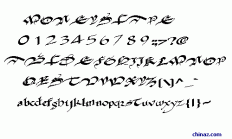 MONEYSTYPE
0123456789=?@
ABCDEFGHIJKLMNOP
QRSTUVWXYZ[\]^_
abcdefghijklmnopqrstuvwxyz{|}~
chinaz.com